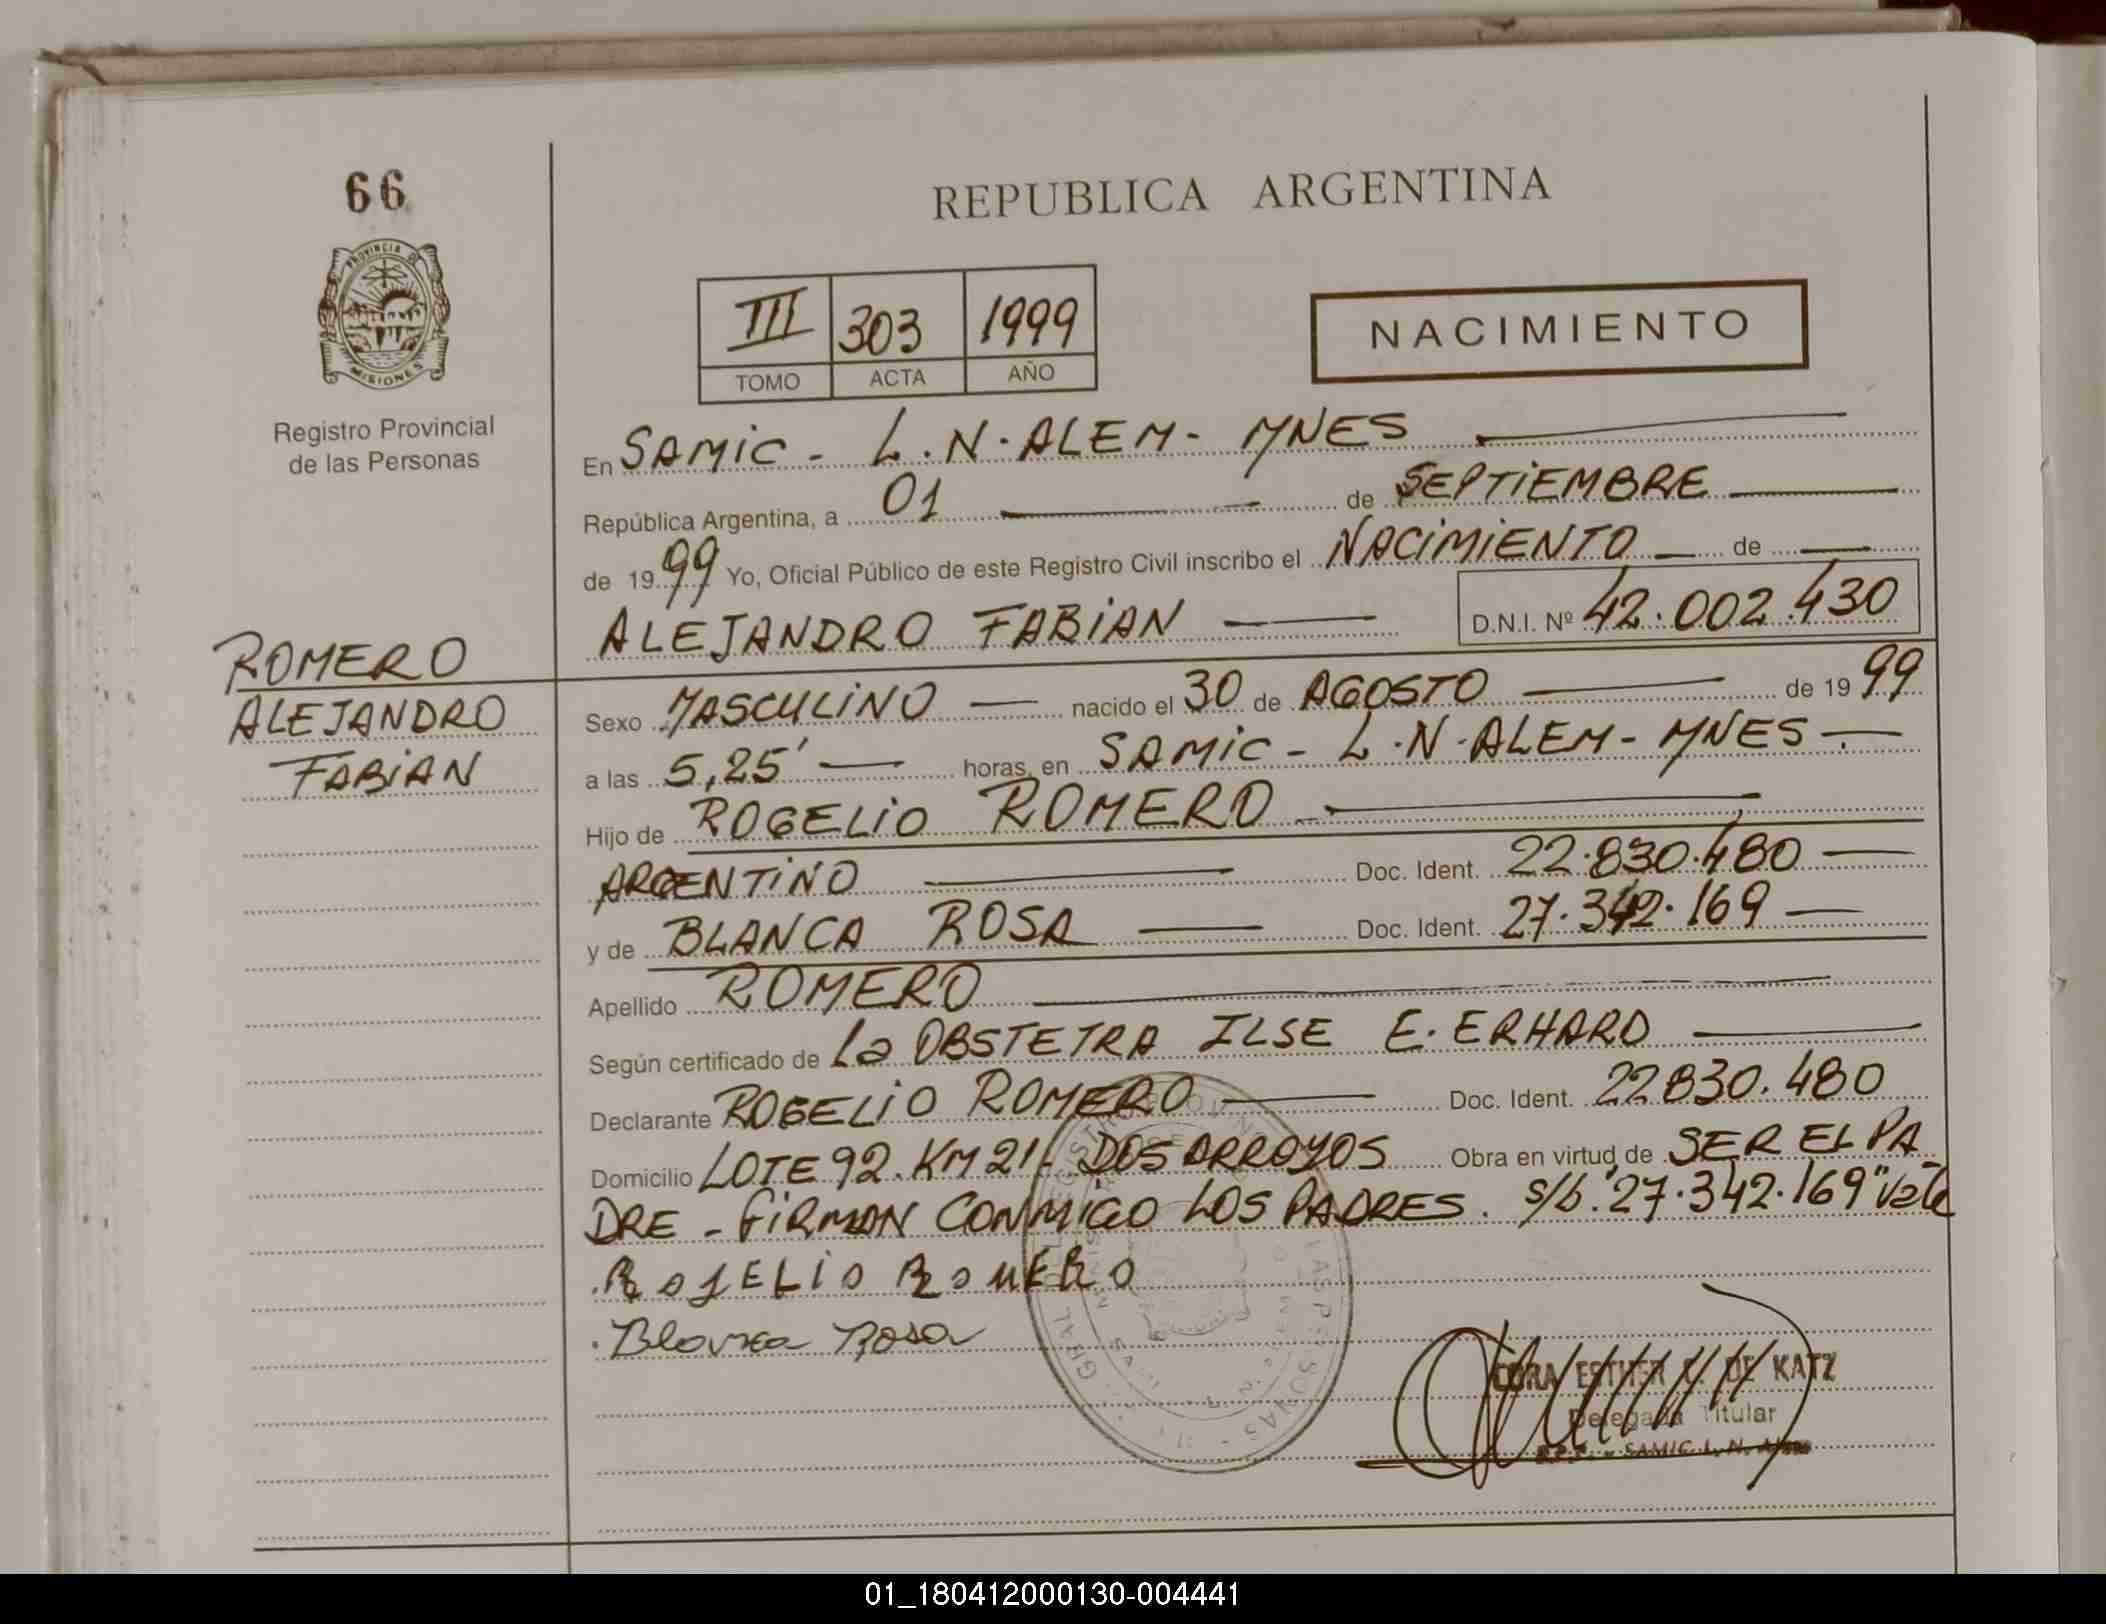 66
REPUBLICA ARGENTINA
PROVINCIA DE
MISIONES
III 303 1999
TOMO ACTA AÑO
NACIMIENTO
Registro Provincial
de las Personas
En SAMIC - L.N. ALEM - MNES
República Argentina, a 01 de SEPTIEMBRE
de 1999 Yo, Oficial Público de este Registro Civil inscribo el NACIMIENTO de
ALEJANDRO FABIAN D.N.I. Nº 42.002.430
ROMERO
ALEJANDRO
FABIAN
Sexo MASCULINO nacido el 30 de AGOSTO de 1999
a las 5,25' horas, en SAMIC - L.N. ALEM - MNES -
Hijo de ROGELIO ROMERO
ARGENTINO Doc. Ident. 22.830.480
y de BLANCA ROSA Doc. Ident. 27.342.169
Apellido ROMERO
Según certificado de La OBSTETRA ILSE E. ERHARD
Declarante ROGELIO ROMERO Doc. Ident. 22830.480
Domicilio LOTE 92. KM 21 - DOS ARROYOS Obra en virtud de SER EL PA
DRE - FIRMAN CONMIGO LOS PADRES. s/b. "27.342.169" Vale
ROJELIO ROMERO
Blanca Rosa
ESTHER DE KATZ
Delegada Titular
SAMIC L. N.
01_180412000130-004441